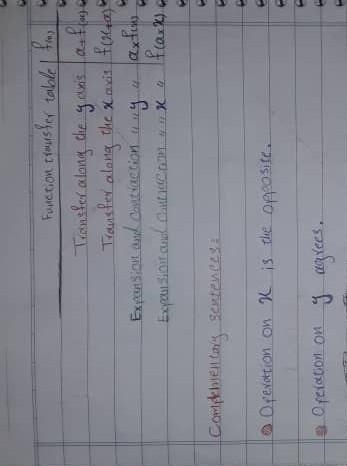 Function transfer table | f(x)
Transfer along the y axis | a+f(x)
Transfer along the x axis | f(x+a)
Expansion and contraction " " y " | a×f(x)
Expansion and contraction " " x " | f(a×x)
Complementary sentences:
Operation on x is the opposite.
Operation on y agrees.